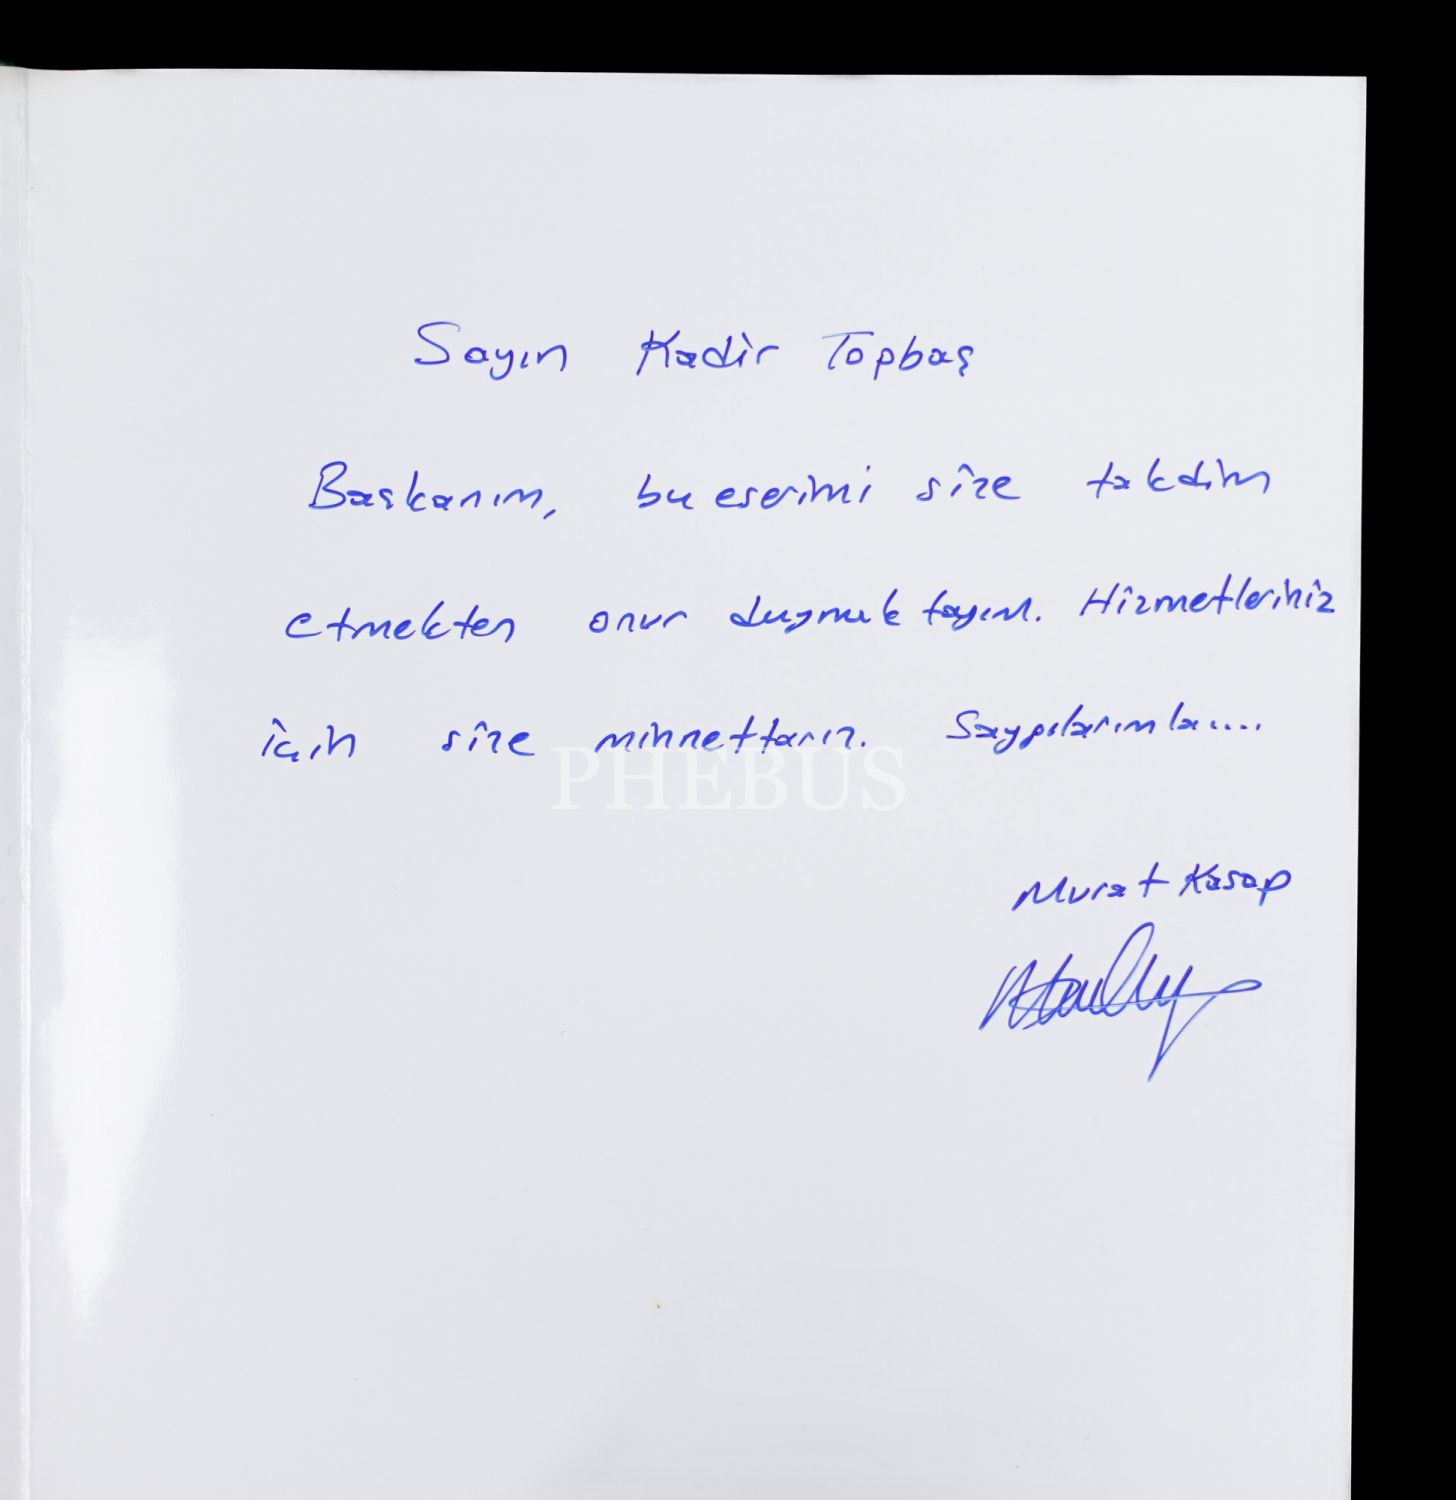 Sayın Kadir Topbaş
Başkanım, bu eserimi size takdim
etmekten onur duymaktayım. Hizmetleriniz
için size minnettarız. Saygılarımla....
PHEBUS
Murat Kasap